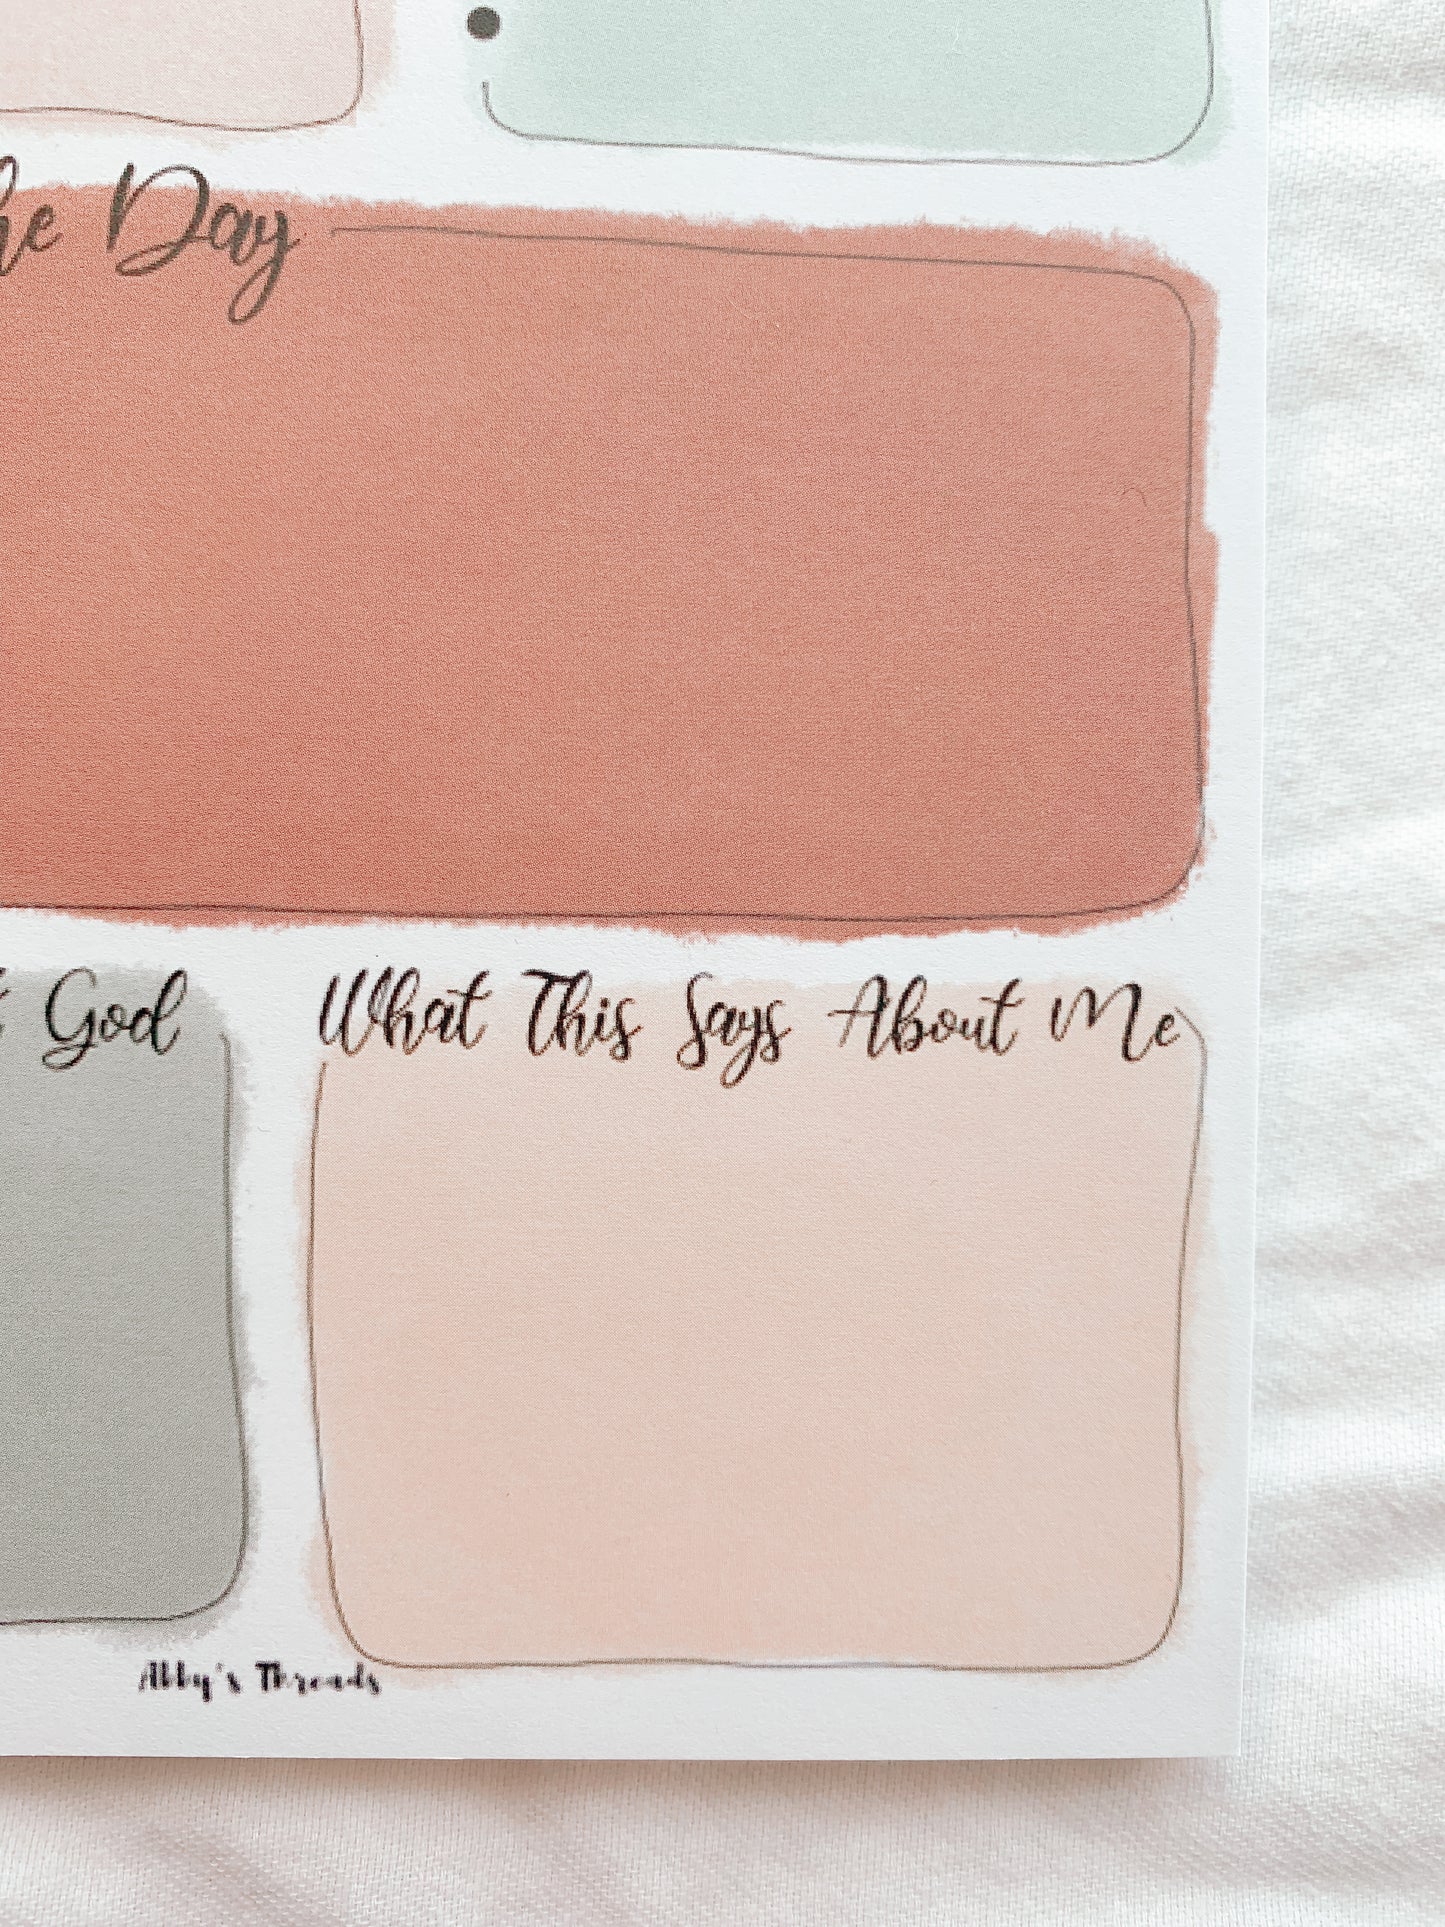 Day
God
What This Says About Me
Abby's Threads